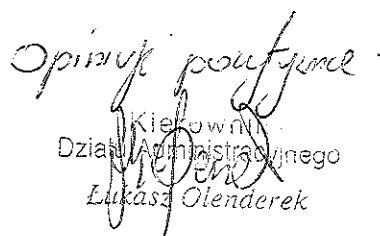 Opiniuję pozytywnie.
Kierownik
Działu Administracyjnego
Łukasz Olenderek